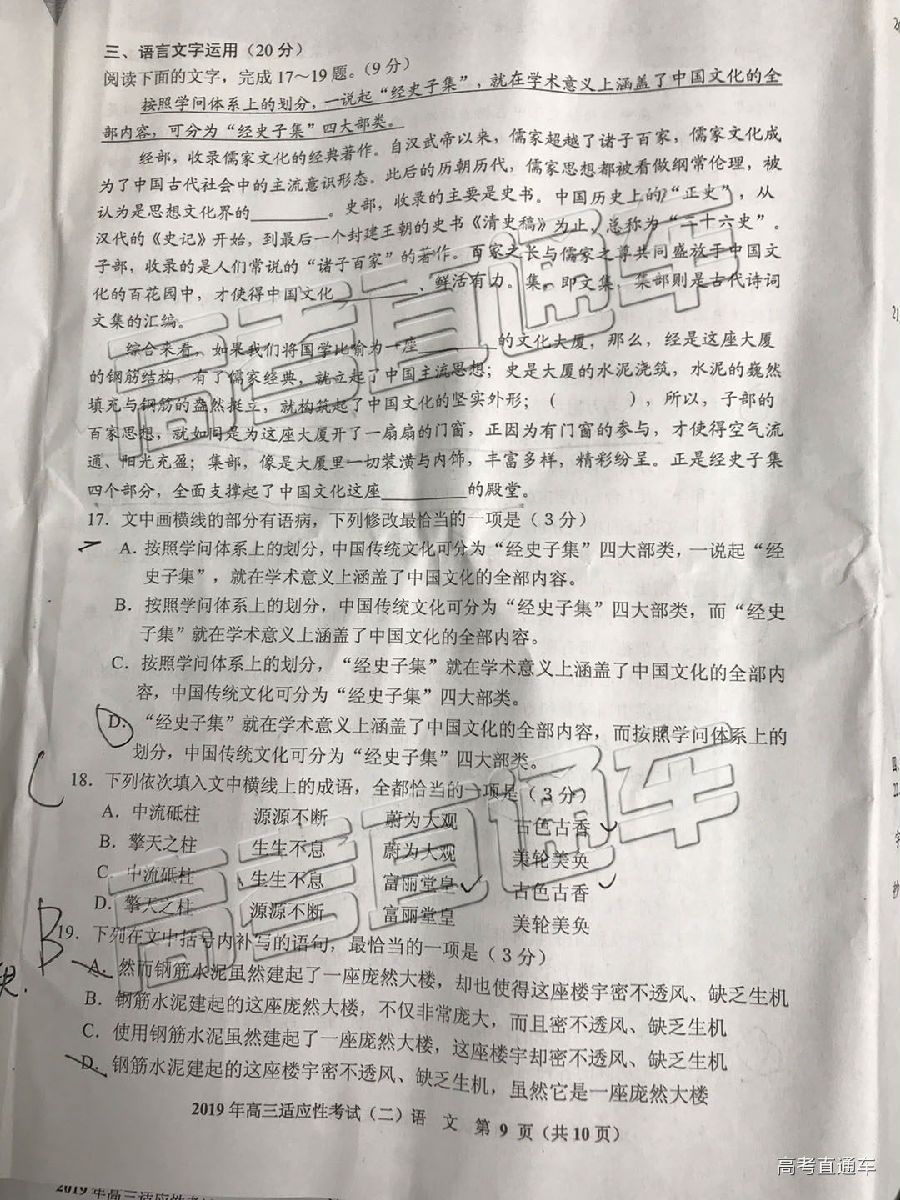 三、语言文字运用（20分）
阅读下面的文字，完成17～19题。（9分）
按照学问体系上的划分，一说起“经史子集”，就在学术意义上涵盖了中国文化的全
部内容，可分为“经史子集”四大部类。
经部，收录儒家文化的经典著作。自汉武帝以来，儒家超越了诸子百家，儒家文化成
为了中国古代社会中的主流意识形态。此后的历朝历代，儒家思想都被看做纲常伦理，被
认为是思想文化界的________。史部，收录的主要是史书。中国历史上的“正史”，从
汉代的《史记》开始，到最后一个封建王朝的史书《清史稿》为止，总称为“二十六史”。
子部，收录的是人们常说的“诸子百家”的著作。百家之长与儒家之尊共同盛放于中国文
化的百花园中，才使得中国文化________、鲜活有力。集，即文集，集部则是古代诗词
文集的汇编。
综合来看，如果我们将国学比喻为一座________的文化大厦，那么，经是这座大厦
的钢筋结构，有了儒家经典，就立起了中国主流思想；史是大厦的水泥浇筑，水泥的巍然
填充与钢筋的盎然挺立，就构筑起了中国文化的坚实外形；（　　　），所以，子部的
百家思想，就如同是为这座大厦开了一扇扇的门窗，正因为有门窗的参与，才使得空气流
通、阳光充盈；集部，像是大厦里一切装潢与内饰，丰富多样，精彩纷呈。正是经史子集
四个部分，全面支撑起了中国文化这座________的殿堂。
17．文中画横线的部分有语病，下列修改最恰当的一项是（3分）
A．按照学问体系上的划分，中国传统文化可分为“经史子集”四大部类，一说起“经
史子集”，就在学术意义上涵盖了中国文化的全部内容。
B．按照学问体系上的划分，中国传统文化可分为“经史子集”四大部类，而“经史
子集”就在学术意义上涵盖了中国文化的全部内容。
C．按照学问体系上的划分，“经史子集”就在学术意义上涵盖了中国文化的全部内
容，中国传统文化可分为“经史子集”四大部类。
D．“经史子集”就在学术意义上涵盖了中国文化的全部内容，而按照学问体系上的
划分，中国传统文化可分为“经史子集”四大部类。
C
18．下列依次填入文中横线上的成语，全都恰当的一项是（3分）
A．中流砥柱 源源不断 蔚为大观 古色古香
B．擎天之柱 生生不息 蔚为大观 美轮美奂
C．中流砥柱 生生不息 富丽堂皇 古色古香
D．擎天之柱 源源不断 富丽堂皇 美轮美奂
B
19．下列在文中括号内补写的语句，最恰当的一项是（3分）
A．然而钢筋水泥虽然建起了一座庞然大楼，却也使得这座楼宇密不透风、缺乏生机
B．钢筋水泥建起的这座庞然大楼，不仅非常庞大，而且密不透风、缺乏生机
C．使用钢筋水泥虽然建起了一座庞然大楼，这座楼宇却密不透风、缺乏生机
D．钢筋水泥建起的这座楼宇密不透风、缺乏生机，虽然它是一座庞然大楼
2019年高三适应性考试（二）语 文 第9页（共10页）
高考直通车
高考直通车
高考直通车